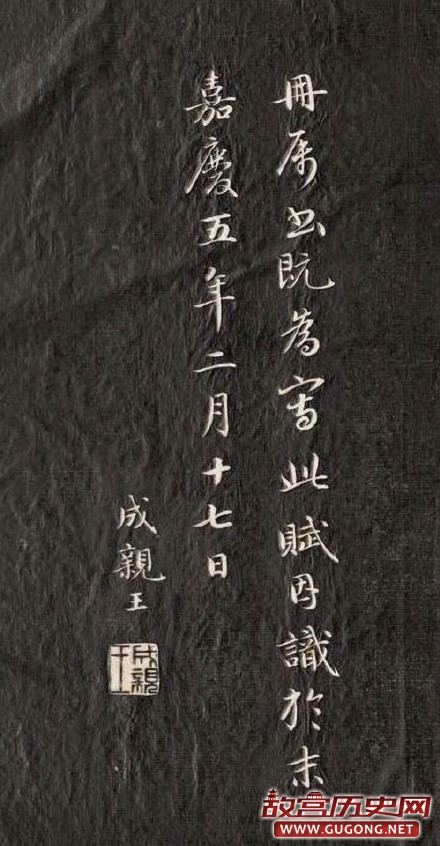 冊属書既為寫此賦因識於末
嘉慶五年二月十七日
成親王
成親王
故宫历史网
WWW.GUGONG.NET